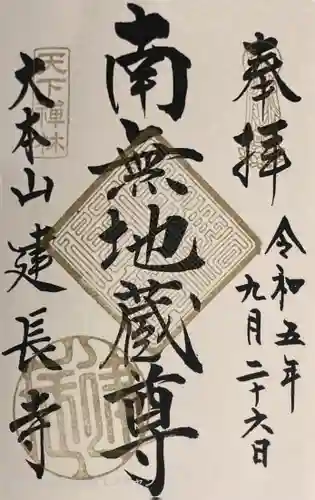 奉拝
令和五年
九月二十六日
南無地蔵尊
天下禅林
大本山建長寺